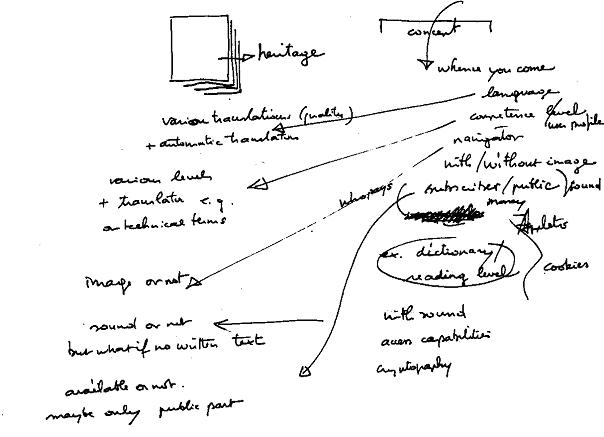 heritage
concent
whence you come
language
various translations (quality)
+ automatic translation
competence level
user profile
navigator
with/without image
various levels
+ translator e.g.
on technical terms
subscriber/public
sound
money
Applets
ex. dictionary/
reading level
cookies
image or not
sound or not
but what if no written text
with sound
access capabilities
cryptography
available or not.
maybe only public part